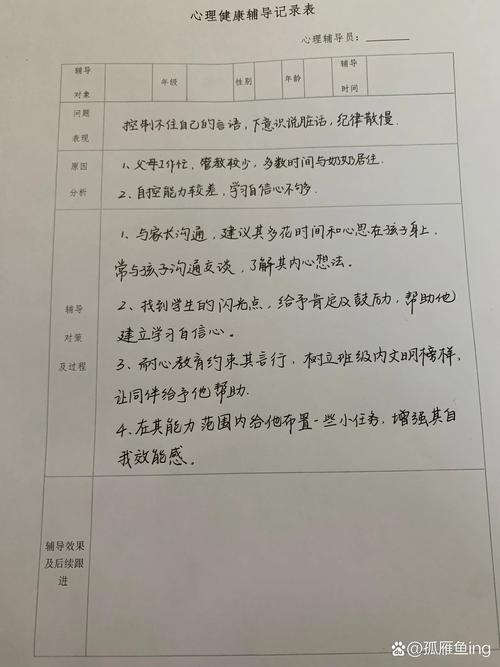 心理健康辅导记录表
心理辅导员：
辅导
对象
年级
性别
年龄
辅导
时间
问题
表现
控制不住自己的言语，下意识说脏话，纪律散慢.
原因
分析
1、父母工作忙，管教较少，多数时间与奶奶居住.
2、自控能力较差，学习自信心不够.
辅导
对策
及过程
1、与家长沟通，建议其多花时间和心思在孩子身上，
常与孩子沟通交谈，了解其内心想法。
2、找到学生的闪光点，给予肯定及鼓励，帮助他
建立学习自信心。
3、耐心教育约束其言行，树立班级内文明榜样，
让同伴给予他帮助.
4、在其能力范围内给他布置一些小任务，增强其自
我效能感。
辅导效果
及后续跟
进
@孤雁鱼ing